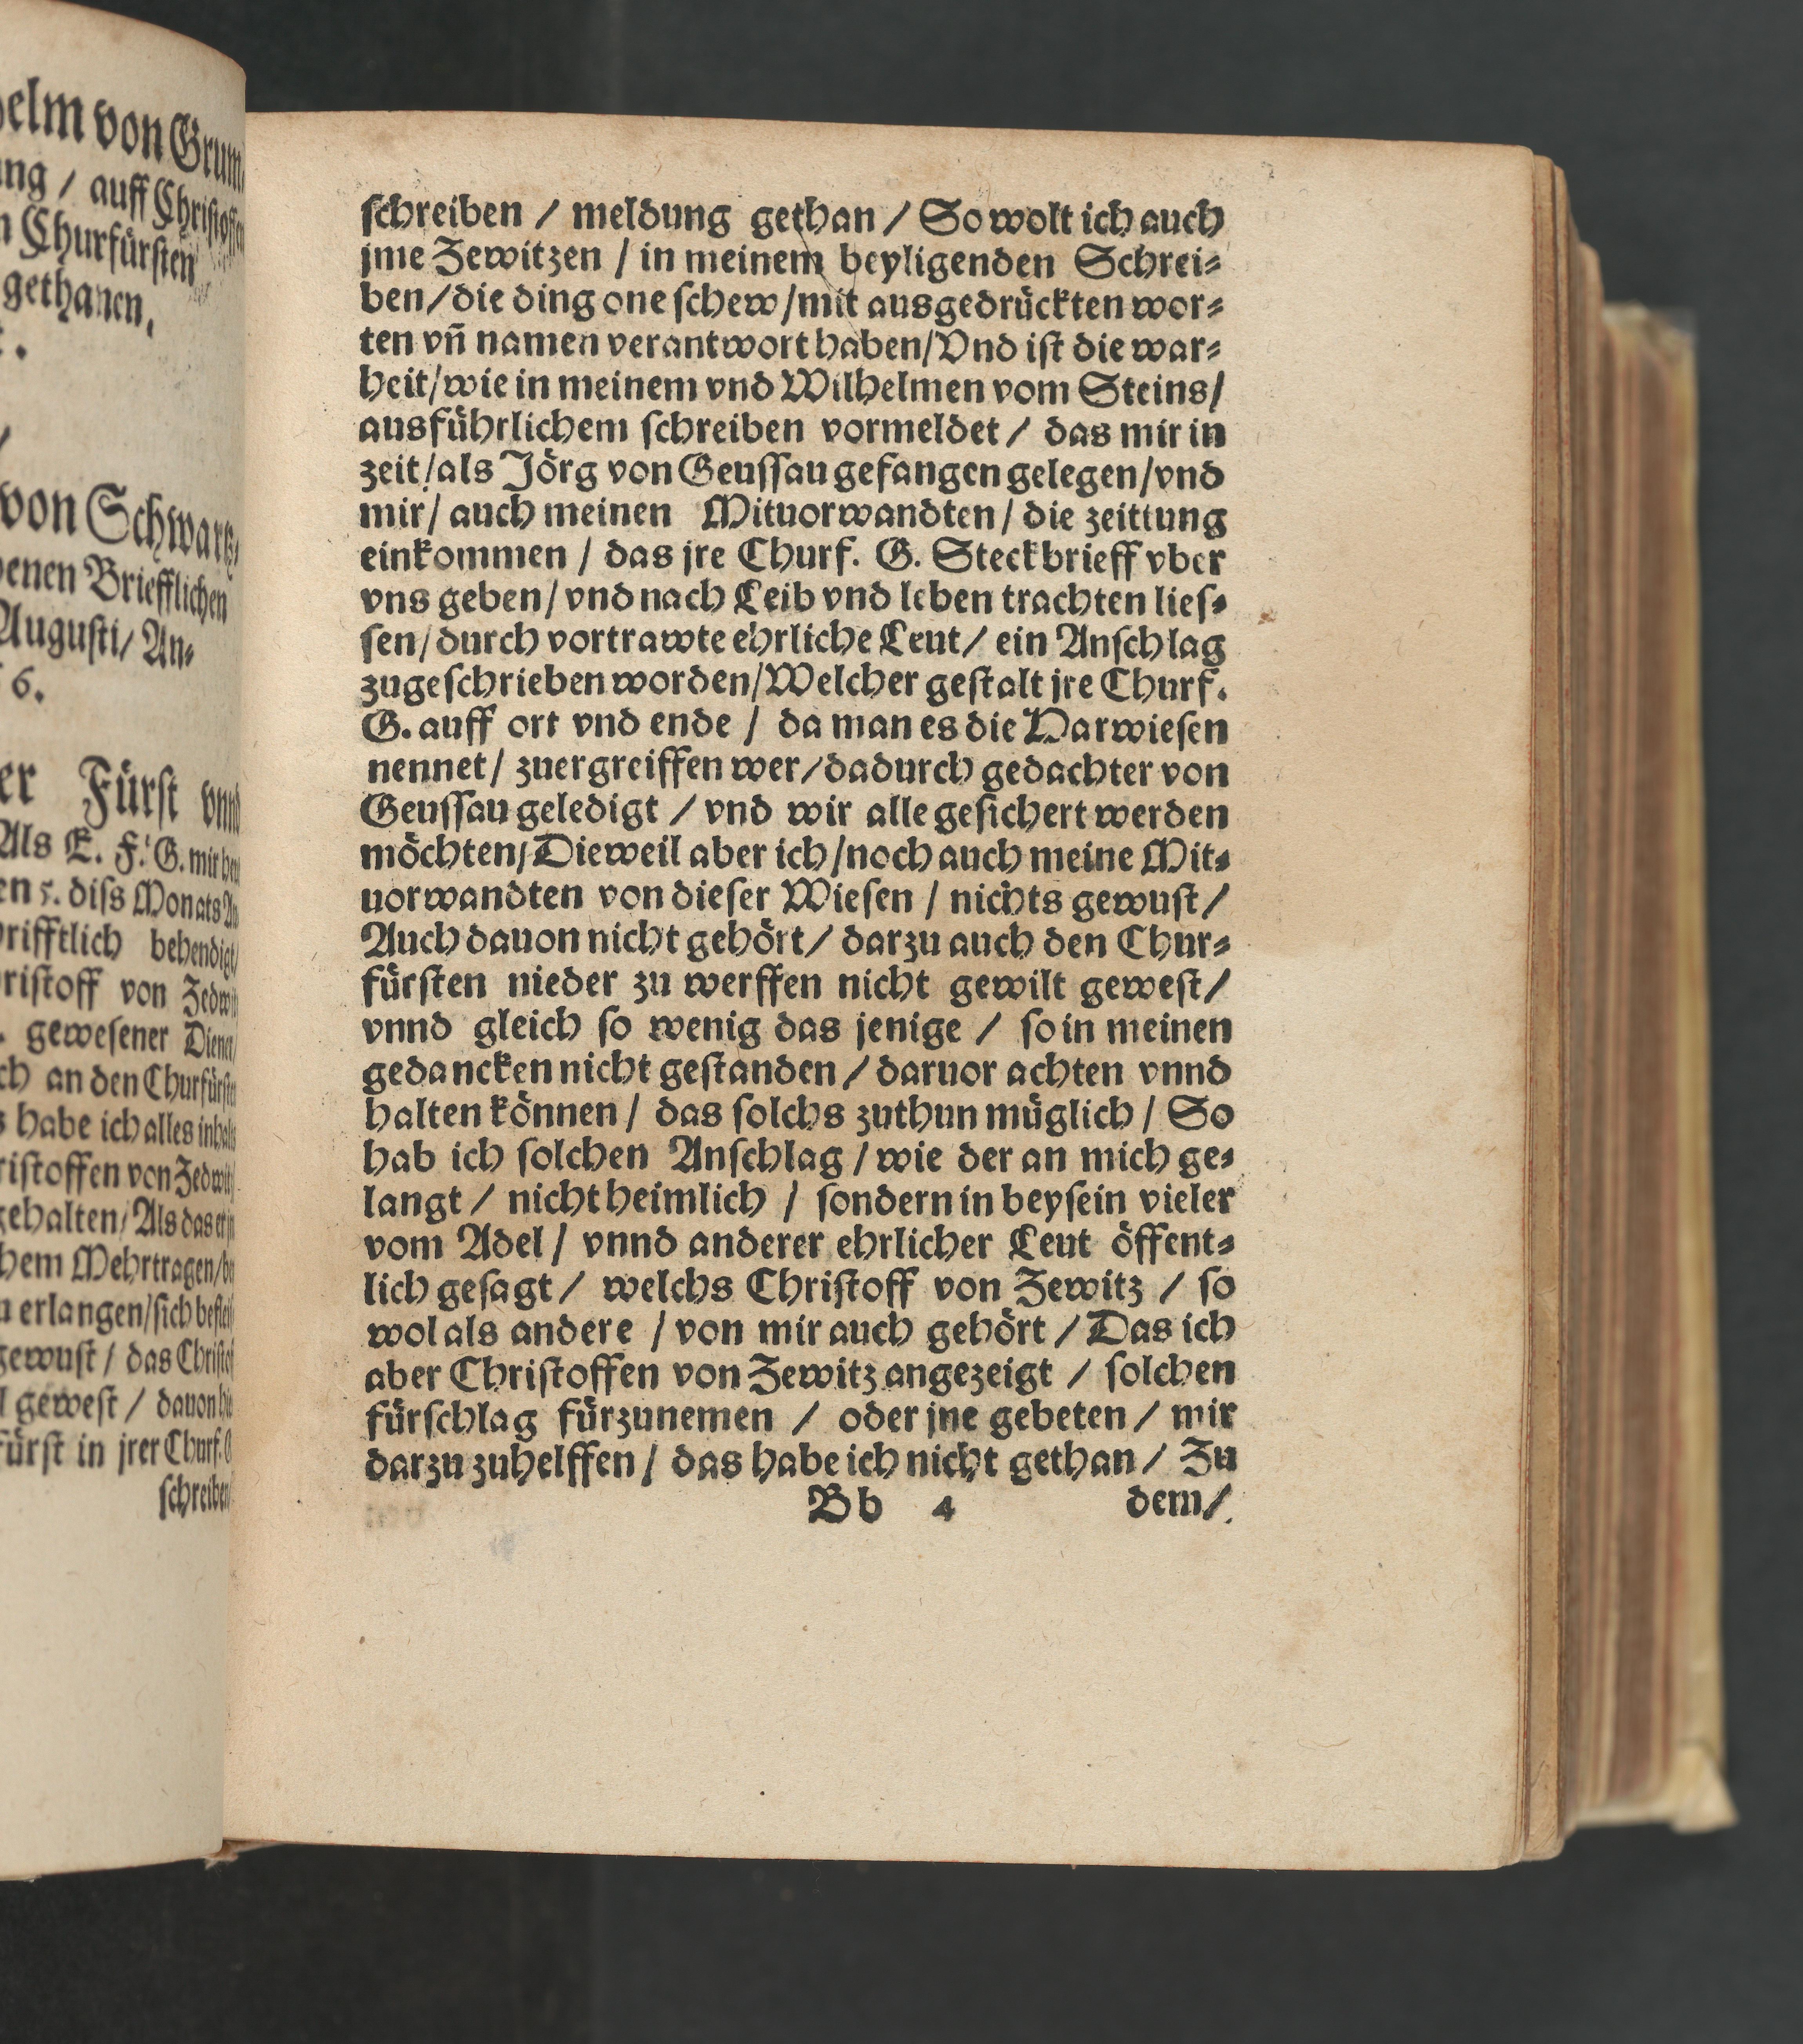 elm von Grum
ng / auff Christoffen
n Churfürsten
gethanen,
von Schwartz⸗
enen Briefflichen
Augusti/ An⸗
6.
er Fürst vnnd
Als E. F. G. mir
en 5. diſs Monats
rifftlich behendigt/
ristoff von Zedwitz
. gewesener Diener/
ch an den Churfürsten
s habe ich alles inhalts
ristoffen von Zedwitz
gehalten/ Als das er
hem Mehrtragen/
u erlangen/ sich
gewust / das
l gewest / dauon
fürst in jrer Churf. G
schreiben/
ſchreiben / meldung gethan / So wolt ich auch
jme Zewitzen / in meinem beyligenden Schrei⸗
ben / die ding one ſchew / mit ausgedrückten wor⸗
ten vn̄ namen verantwort haben / Vnd iſt die war⸗
heit / wie in meinem vnd Wilhelmen vom Steins /
ausführlichem ſchreiben vormeldet / das mir in
zeit / als Jörg von Geuſſau gefangen gelegen / vnd
mir / auch meinen Mituorwandten / die zeittung
einkommen / das jre Churf. G. Steckbrieff vber
vns geben / vnd nach Leib vnd leben trachten lieſ⸗
ſen / durch vortrawte ehrliche Leut / ein Anſchlag
zugeſchrieben worden / Welcher geſtalt jre Churf.
G. auff ort vnd ende / da man es die Narwieſen
nennet / zuergreiffen wer / dadurch gedachter von
Geuſſau geledigt / vnd wir alle geſichert werden
möchten / Dieweil aber ich / noch auch meine Mit⸗
uorwandten von dieſer Wieſen / nichts gewuſt /
Auch dauon nicht gehört / darzu auch den Chur⸗
fürſten nieder zu werffen nicht gewilt geweſt /
vnnd gleich ſo wenig das jenige / ſo in meinen
gedancken nicht geſtanden / daruor achten vnnd
halten können / das ſolchs zuthun müglich / So
hab ich ſolchen Anſchlag / wie der an mich ge⸗
langt / nicht heimlich / ſondern in beyſein vieler
vom Adel / vnnd anderer ehrlicher Leut öffent⸗
lich geſagt / welchs Chriſtoff von Zewitz / ſo
wol als andere / von mir auch gehört / Das ich
aber Chriſtoffen von Zewitz angezeigt / ſolchen
fürſchlag fürzunemen / oder jne gebeten / mir
darzu zuhelffen / das habe ich nicht gethan / Zu
Bb 4 dem /